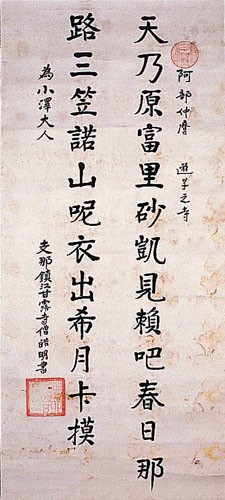 阿部仲麿 遊学之寺
天乃原富里砂凱見賴吧春日那
路三笠諾山呢衣出希月卡摸
為小澤大人
支那鎮江甘露寺僧皓明書